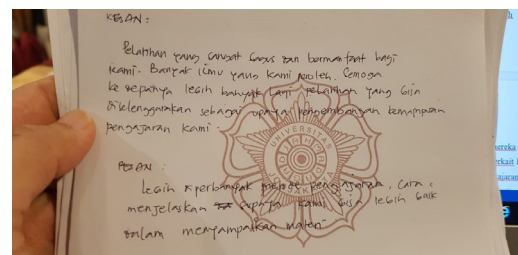 KESAN :
Pelatihan yang sangat bagus dan bermanfaat bagi
kami. Banyak ilmu yang kami peroleh. Semoga
ke depannya lebih banyak lagi pelatihan yang bisa
diselenggarakan sebagai upaya pengembangan kemampuan
pengajaran kami.
PESAN :
Lebih diperbanyak metode pengajaran, cara
menjelaskan supaya kami bisa lebih baik
dalam menyampaikan materi
UNIVERSITAS
ereka
erkait
ajaran